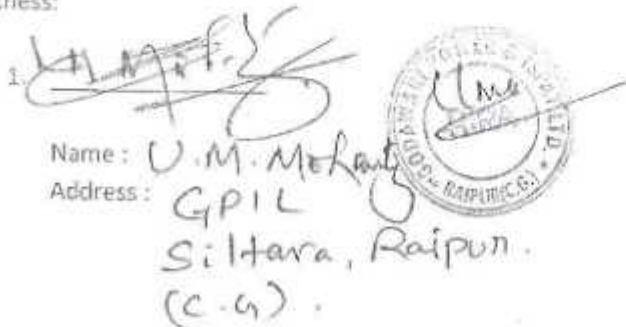 ness:
1.
Name : U.M. Mohanty
Address : GPIL
Siltara, Raipur.
(C.G).
GODAWARI POWER & ISPAT LTD. * RAIPUR (C.G.) *